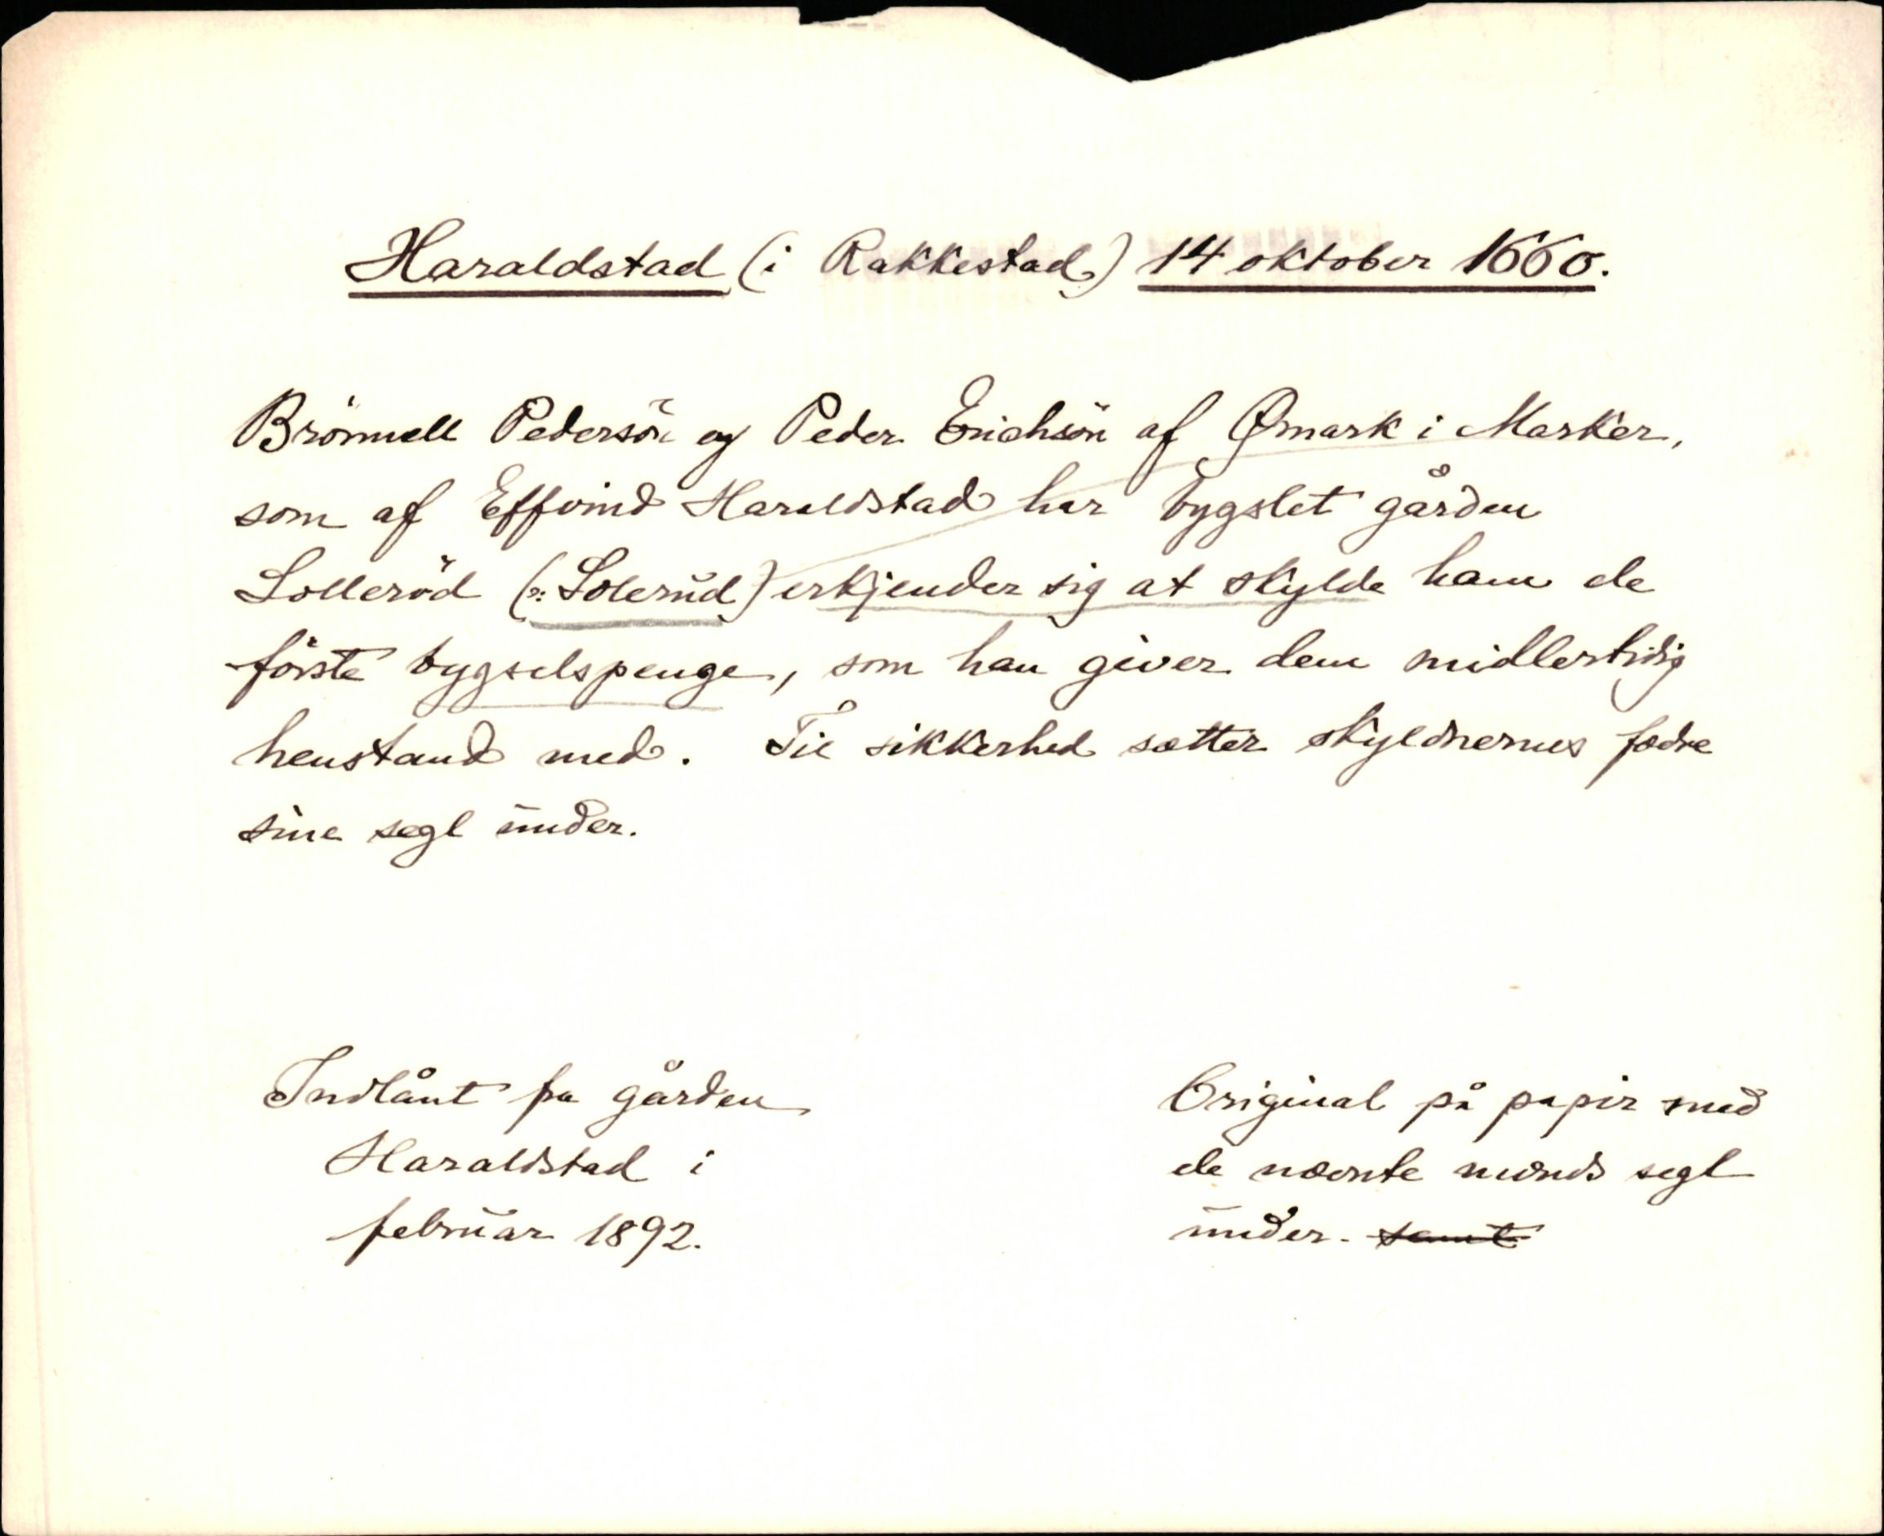 Haraldstad (i Rakkestad) 14 oktober 1660.
Brönnell Pedersön og Peder Erichsön af Ømark i Marker,
som af Effvind Haraldstad har bygslet gården
Lolleröd (ɔ: Solerud) erkjender sig at skylde ham de
förste bygselspenge, som han giver dem midlertidig
henstand med. Til sikkerhed sætter skyldnernes fædre
sine segl under.
Indlånt fra gården
Haraldstad i
februar 1892.
Original på papir med
de nævnte mænds segl
under. samt